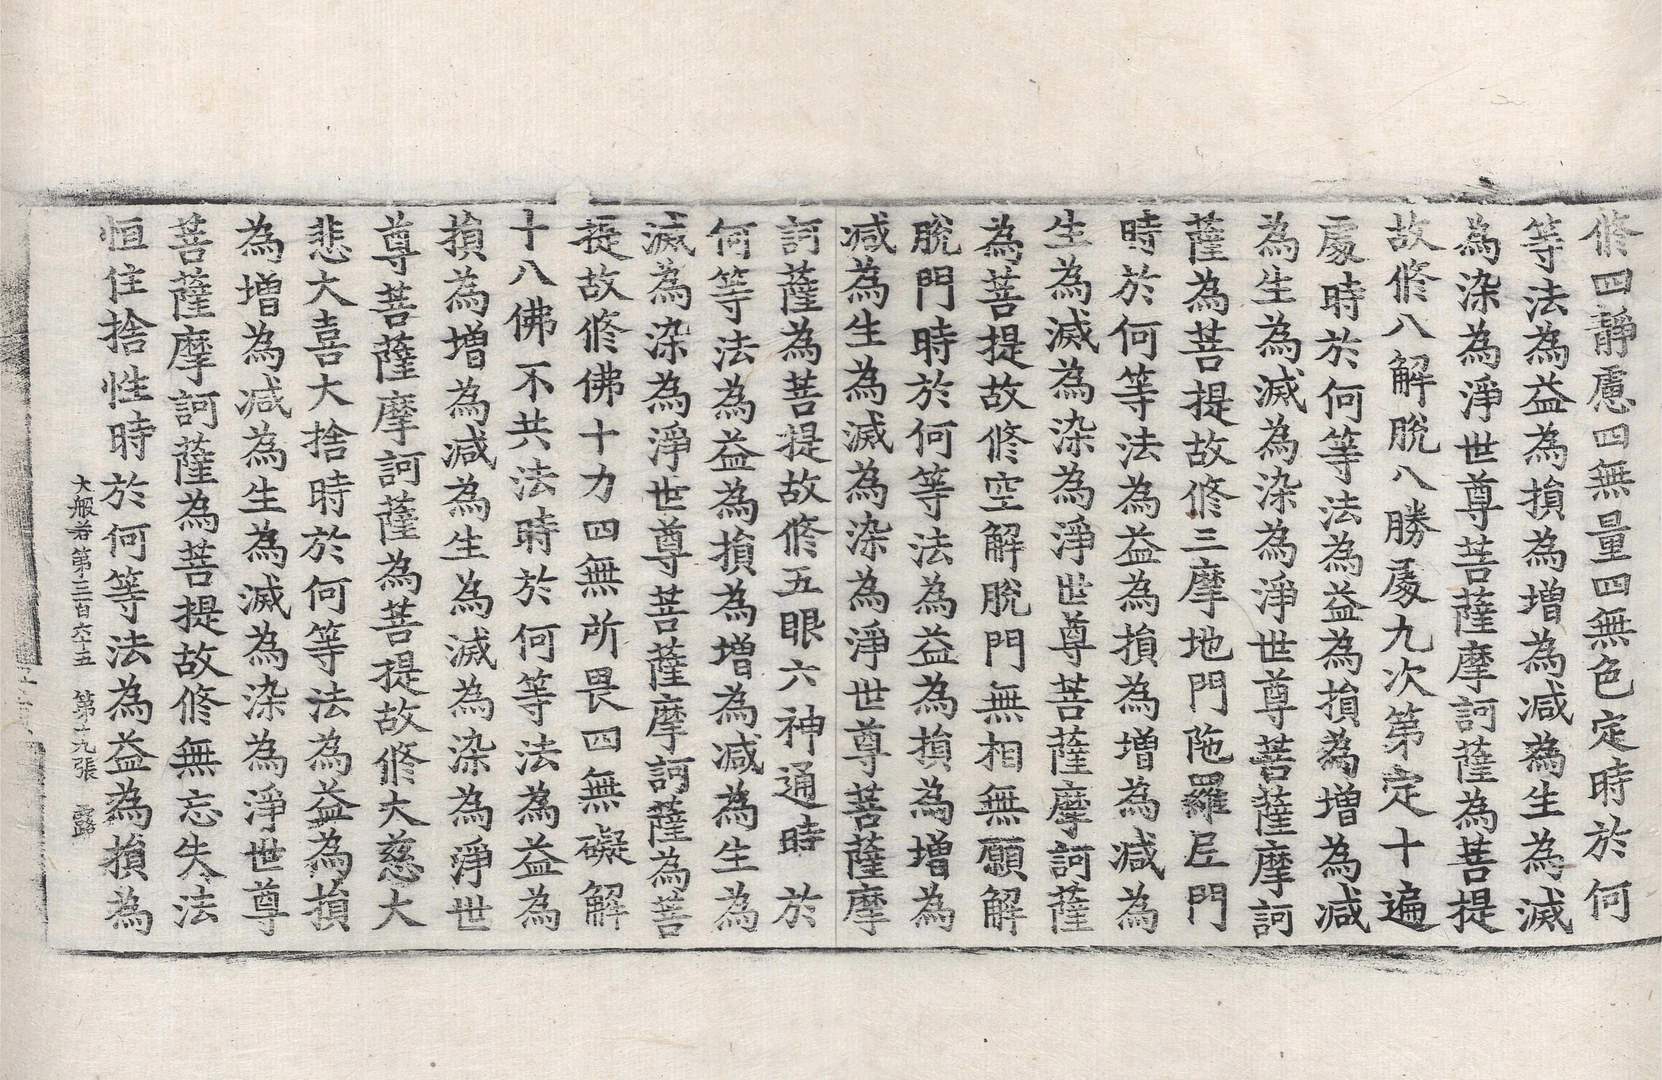 修四靜慮四無量四無色定時於何
等法為益為損為增為減為生為滅
為染為淨世尊菩薩摩訶薩為菩提
故修八解脫八勝處九次第定十遍
處時於何等法為益為損為增為減
為生為滅為染為淨世尊菩薩摩訶
薩為菩提故修三摩地門陁羅尼門
時於何等法為益為損為增為減為
生為滅為染為淨世尊菩薩摩訶薩
為菩提故修空解脫門無相無願解
脫門時於何等法為益為損為增為
減為生為滅為染為淨世尊菩薩摩
訶薩為菩提故修五眼六神通時於
何等法為益為損為增為減為生為
滅為染為淨世尊菩薩摩訶薩為菩
提故修佛十力四無所畏四無礙解
十八佛不共法時於何等法為益為
損為增為減為生為滅為染為淨世
尊菩薩摩訶薩為菩提故修大慈大
悲大喜大捨時於何等法為益為損
為增為減為生為滅為染為淨世尊
菩薩摩訶薩為菩提故修無忘失法
恒住捨性時於何等法為益為損為
大般若第三百六十五 第十九張 露